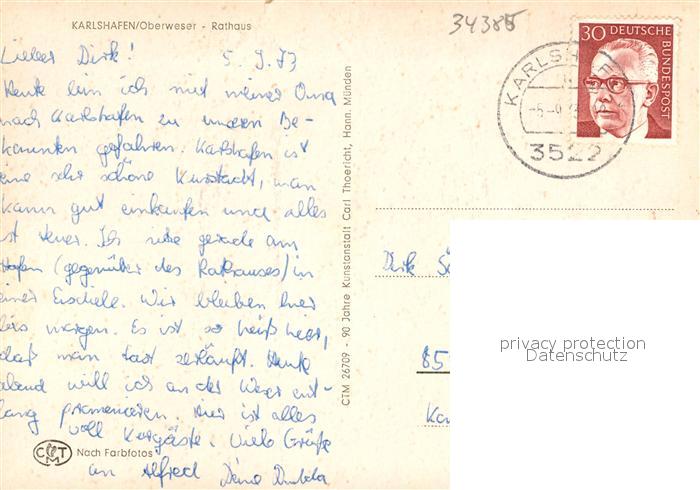 KARLSHAFEN/Oberweser - Rathaus
34385
Lieber Dirk! 5.9.73
Heute bin ich mit meiner Oma
nach Karlshafen zu unseren Be-
kannten gefahren. Karlshafen ist
eine sehr schöne Kurstadt, man
kann gut einkaufen und alles
ist teuer. Ich sitze gerade am
Hafen (gegenüber des Rathauses) in
einer Eisdiele. Wir bleiben hier
bis morgen. Es ist so heiß hier,
daß man fast zerläuft. Heute
abend will ich an der Weser ent-
lang promenieren. Hier ist alles
voll Kurgäste. Viele Grüße
an Alfred Deine
CMT Nach Farbfotos
CTM 26709 - 90 Jahre Kunstanstalt Carl Thoericht, Hann. Münden
30 DEUTSCHE
BUNDESPOST
KARLSH
3522
Dirk
85
privacy protection
Datenschutz